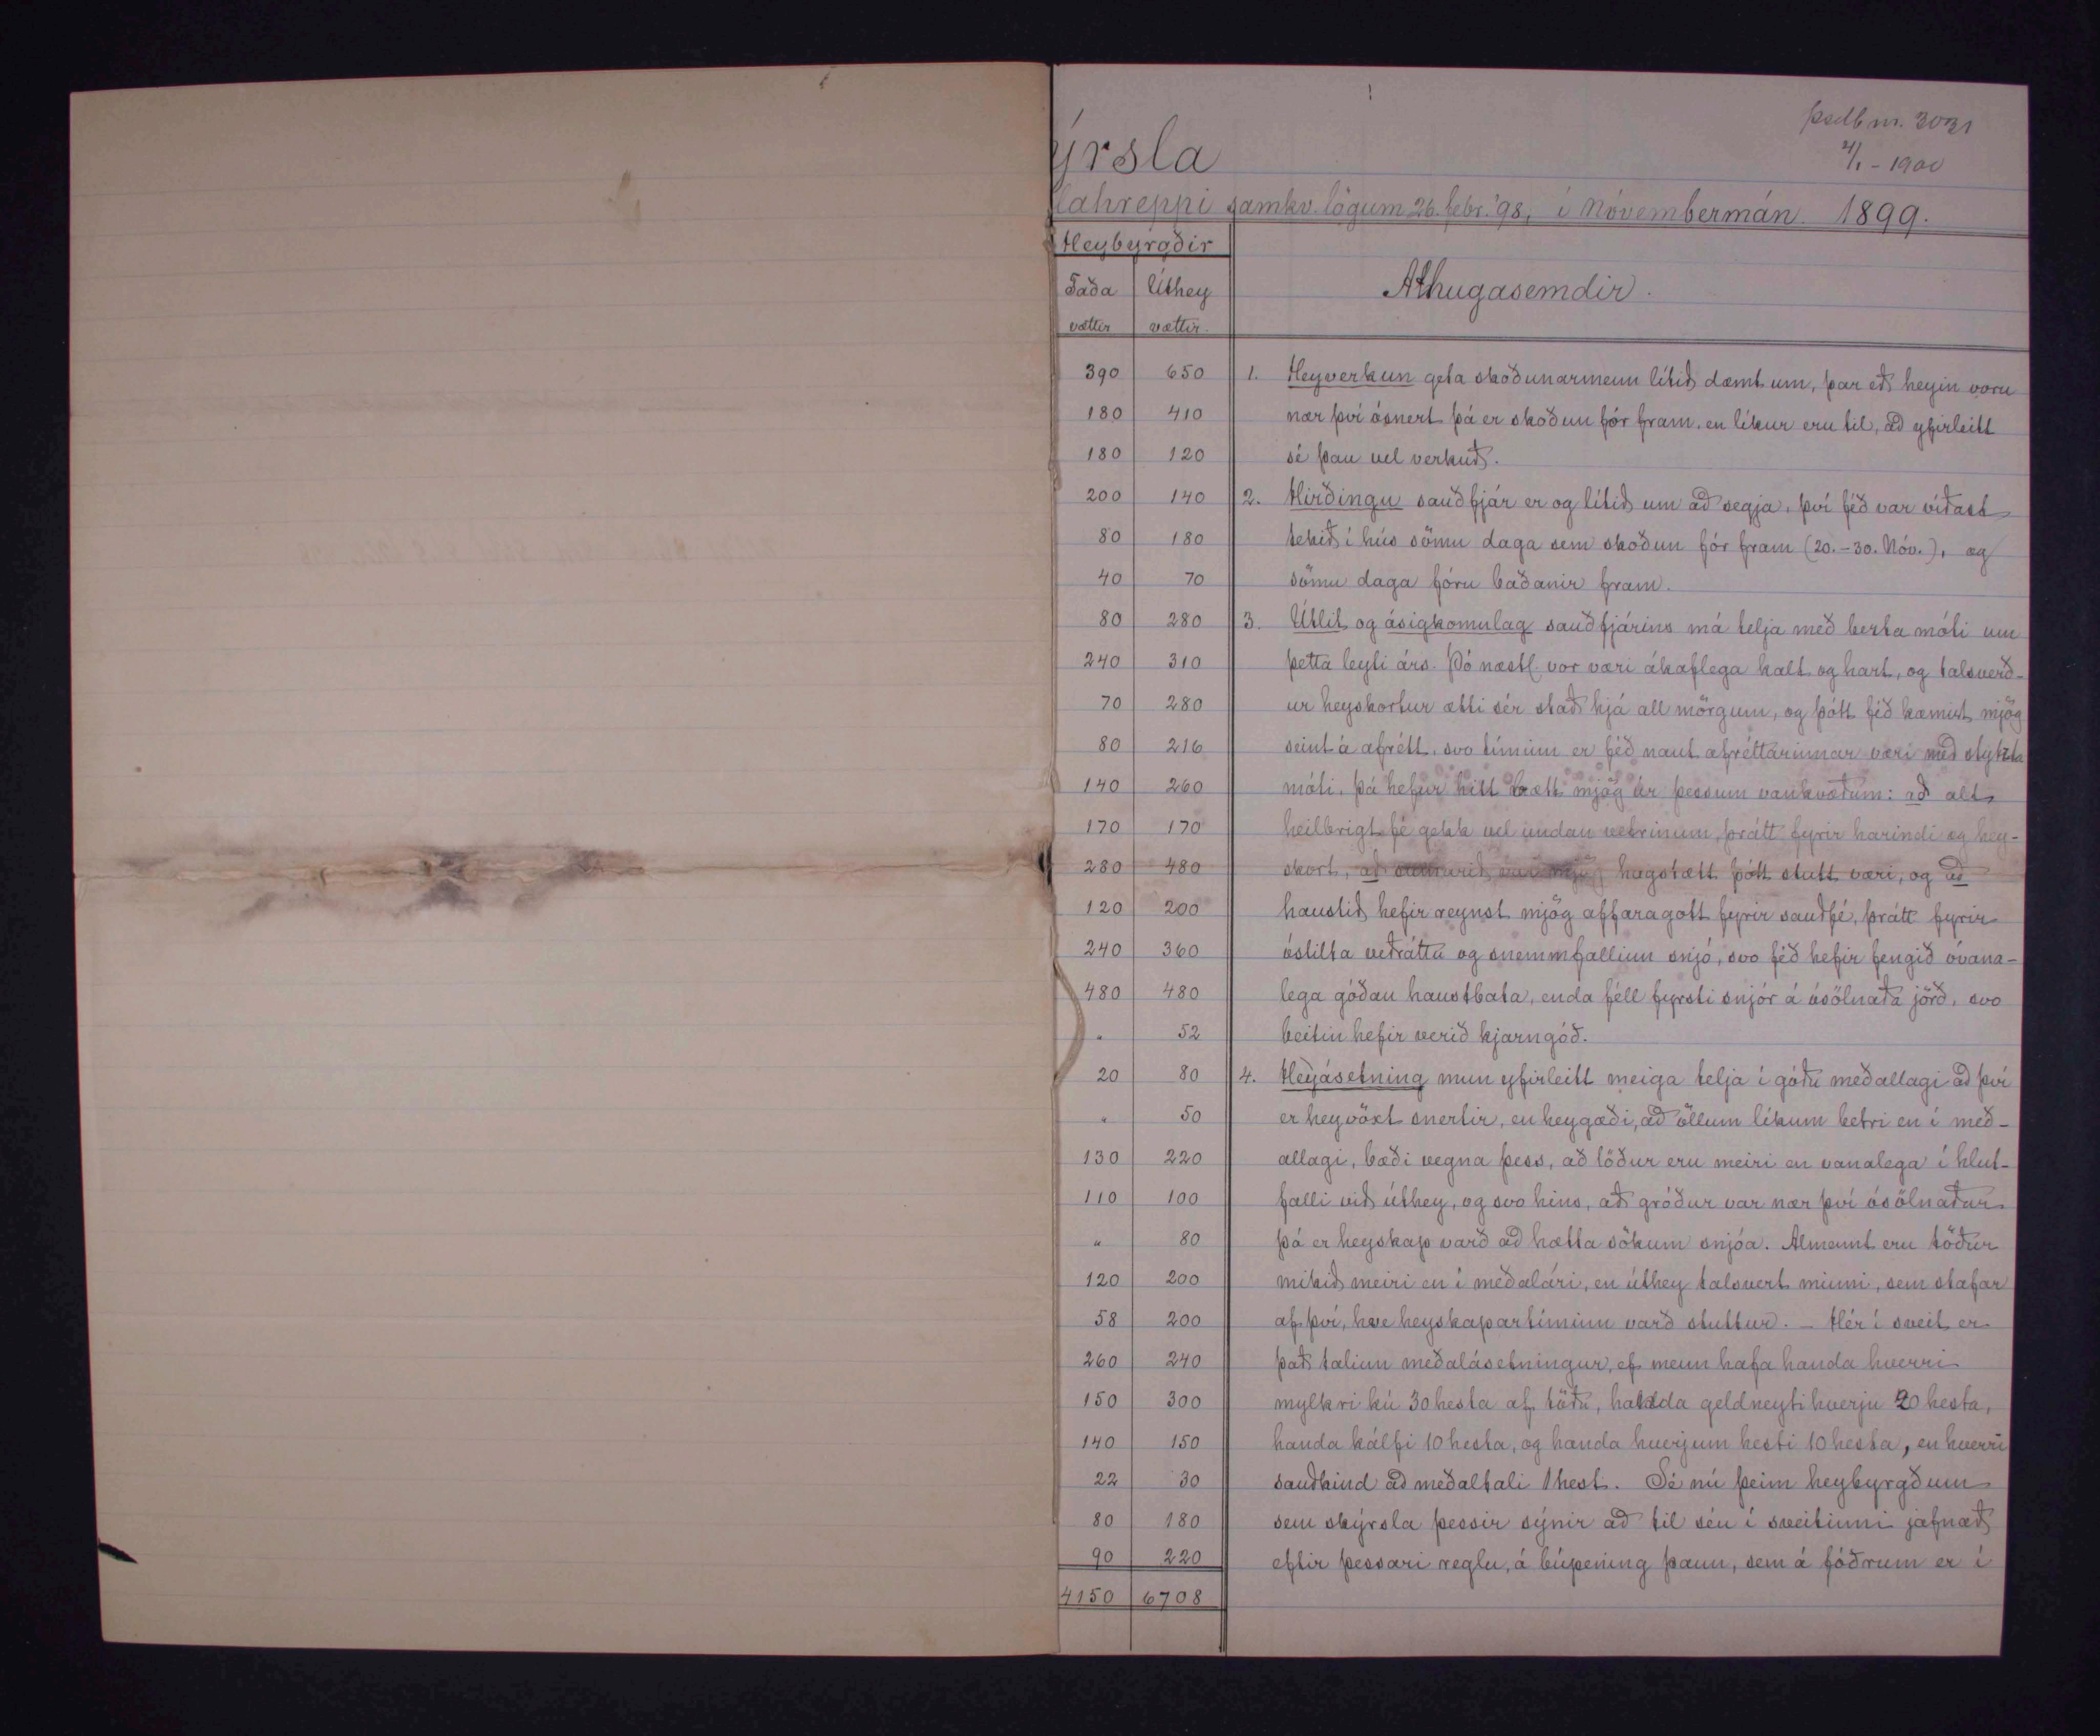 ýrsla
4/1 - 1900
lahreppi samkv. lögum 26. febr. '98, í Nóvembermán. 1899.
Heybyrgðir
Taða Úthey Athugasemdir.
vættir vættir.
390 650 1. Heyverkun geta skoðunarmenn lítið dæmt um, þar eð heyin voru
180 410 nær því ósnert þá er skoðun fór fram, en líkur eru til, að yfirleitt
180 120 sé þau vel verkuð.
200 140 2. Hirðingu sauðfjár er og lítið um að segja, því féð var víðast
80 180 tekið í hús sömu daga sem skoðun fór fram (20.-30. Nóv.), og
40 70 sömu daga fóru baðanir fram.
80 280 3. Útlit og ásigkomulag sauðfjárins má telja með bezta móti um
240 310 þetta leyti árs. Þó næstl. vor væri ákaflega kalt og hart, og talsverð-
70 280 ur heyskortur ætti sér stað hjá all mörgum, og þótt féð kæmist mjög
80 216 seint á afrétt, svo tíminn er féð naut afréttarinnar væri með stytzta
140 260 móti, þá hefur hitt bætt mjög úr þessum vankvæðum: að alt
170 170 heilbrigt fé gekk vel undan vetrinum, þrátt fyrir harindi og hey-
280 480 skort, að sumarið var mjög hagstætt þótt stutt væri, og að
120 200 haustið hefir reynst mjög affaragott fyrir sauðfé, þrátt fyrir
240 360 óstilta veðráttu og snemmfallinn snjó, svo féð hefir fengið óvana-
480 480 lega góðan haustbata, enda féll fyrsti snjór á ósölnaða jörð, svo
" 52 beitin hefir verið kjarngóð.
20 80 4. Heyásetning mun yfirleitt meiga telja í góðu meðallagi að því
" 50 er heyvöxt snertir, en heygæði, að öllum líkum betri en í með-
130 220 allagi, bæði vegna þess, að töður eru meiri en vanalega í hlut-
110 100 falli við úthey, og svo hins, að gróður var nær því ósölnaður
" 80 þá er heyskap varð að hætta sökum snjóa. Almennt eru töður
120 200 mikið meiri en í meðalári, en úthey talsvert minni, sem stafar
58 200 af því, hve heyskapartíminn varð stuttur. - Hér í sveit er
260 240 það talinn meðalásetningur, ef menn hafa handa hverri
150 300 mylkri kú 30 hesta af töðu, handa geldneyti hverju 20 hesta,
140 150 handa kálfi 10 hesta, og handa hverjum hesti 10 hesta, en hverri
22 30 sauðkind að meðaltali 1 hest. Sé nú þeim heybyrgðum
80 180 sem skýrsla þessir sýnir að til séu í sveitinni jafnað
90 220 eftir þessari reglu, á búpening þann, sem á fóðrum er í
4150 6708